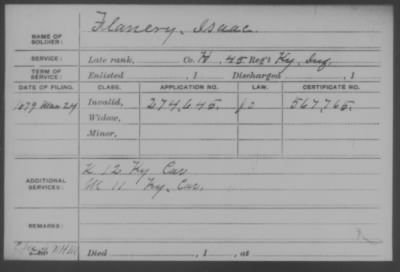 NAME OF SOLDIER: Flanery, Isaac.
SERVICE: Late rank, Co. H, 45 Reg't Ky. Inf.
TERM OF SERVICE: Enlisted , 1 Discharged , 1
DATE OF FILING. CLASS. APPLICATION NO. LAW. CERTIFICATE NO.
1879 Mar 24 Invalid, 274,645. 567,765.
Widow,
Minor,
ADDITIONAL SERVICES: K 12 Ky Cav
M 11 Ky. Cav.
REMARKS:
Died , 1 , at